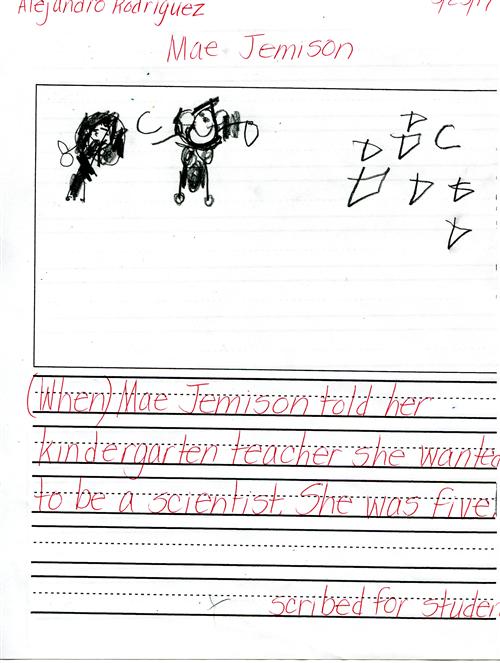 Alejandro Rodriguez
Mae Jemison
(When) Mae Jemison told her
kindergarten teacher she wanted
to be a scientist. She was five.
scribed for studen